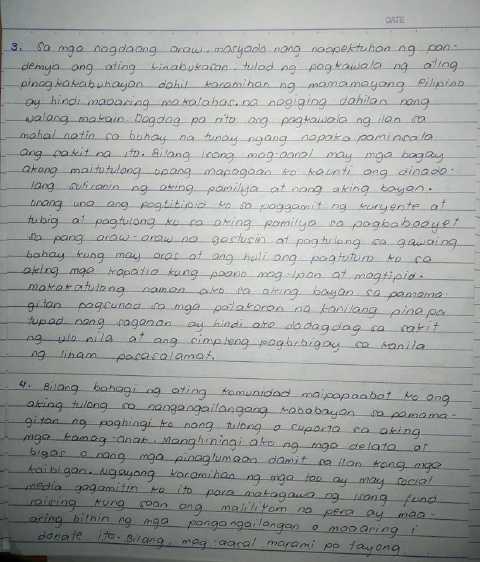 DATE
3. Sa mga nagdaang araw, masyado nang naapektuhan ng pan-
demya ang ating kinabukasan, tulad ng pagkawala ng ating
pinagkakabuhayan dahil karamihan ng mamamayang Pilipino
ay hindi maaaring makalabas, na nagiging dahilan nang
walang makain. Dagdag pa rito ang pagkawala ng ilan sa
mahal natin sa buhay na tunay ngang napaka paminsala
ang sakit na ito. Bilang isang mag-aaral may mga bagay
akong maitutulong upang mapagaan ko kaunti ang dinada-
lang suliranin ng aking pamilya at nang aking bayan.
Unang una ang pagtitipid ko sa paggamit ng kuryente at
tubig at pagtulong ko sa aking pamilya sa pagbabadyet
sa pang araw-araw na gastusin at pagtulong sa gawaing
bahay kung may oras at ang huli ang pagtuturo ko sa
aking mga kapatid kung paano mag-ipon at magtipid.
Makakatulong naman ako sa aking bayan sa pamama-
gitan pagsunod sa mga patakaran na kanilang pinapa
tupad nang saganon ay hindi ako dadagdag sa sakit
ng ulo nila at ang simpleng pagbibigay sa kanila
ng liham pasasalamat.
4. Bilang bahagi ng ating komunidad maipapaabot ko ang
aking tulong sa nangangailangang kababayan sa pamama-
gitan ng paghingi ko nang tulong o suporta sa aking
mga kamag-anak. Manghihingi ako ng mga delata at
bigas o nang mga pinaglumaan damit sa ilan kong mga
kaibigan. Ngayong karamihan ng mga tao ay may social
media gagamitin ko ito para makagawa ng isang fund
raising kung saan ang malilikom na pera ay maa-
aring bilhin ng mga pangangailangan o maaaring i
donate ito. Bilang, mag-aaral marami pa tayong